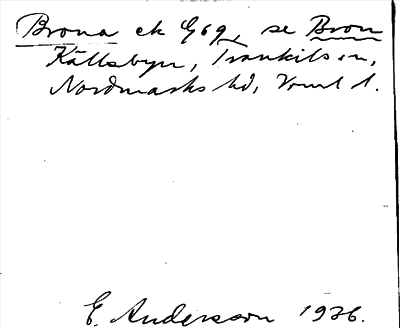 Brona ek Gog, se Bron
Källsbyn, Trankils sn,
Nordmarks hd, Vrml l.
E. Andersson 1926.